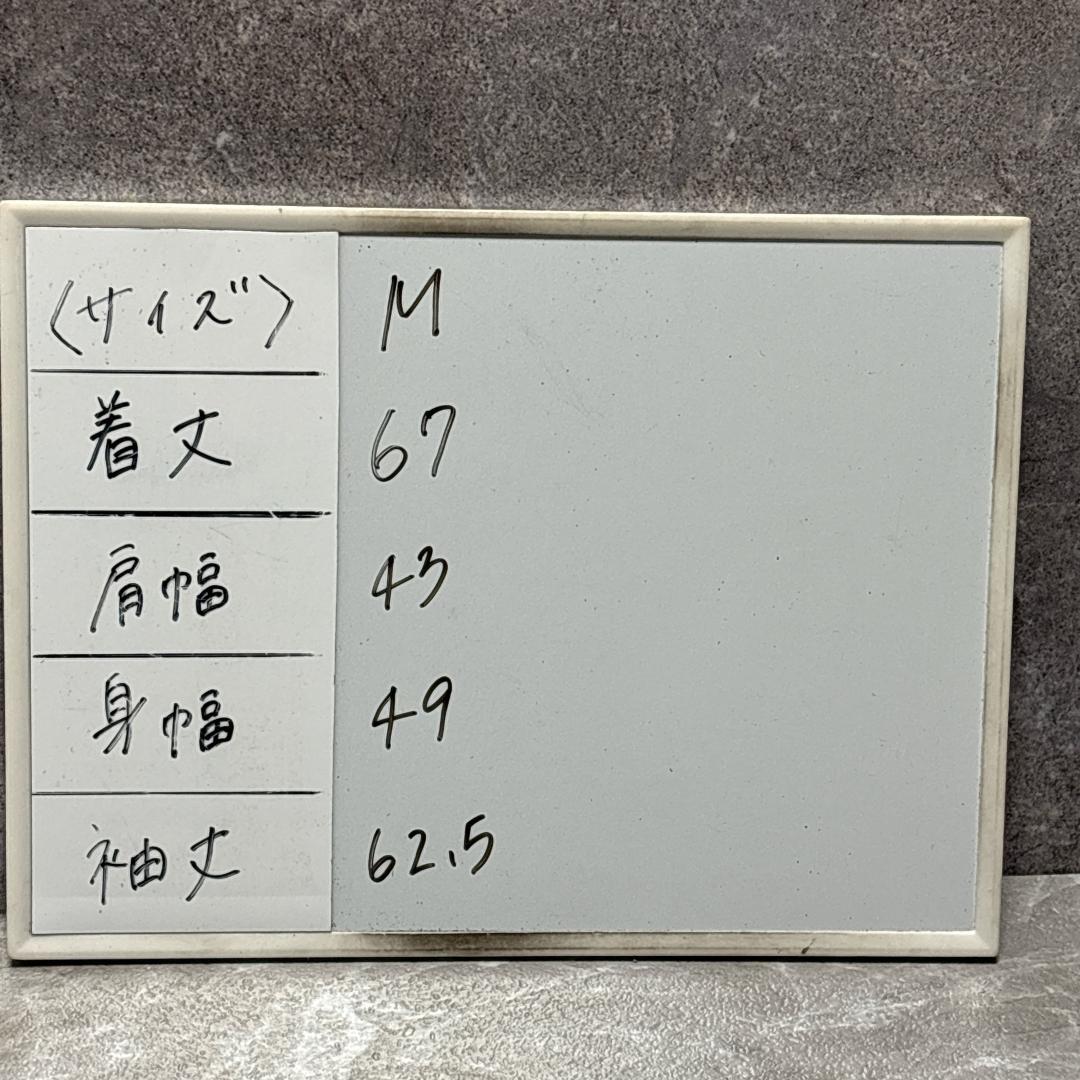 〈サイズ〉 M
着丈 67
肩幅 43
身幅 49
袖丈 62.5